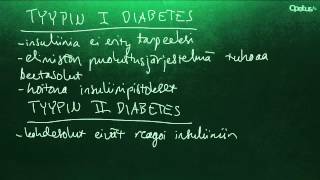 Opetus.tv
TYYPIN I DIABETES
- insuliinia ei erity tarpeeksi
- elimistön puolustusjärjestelmä tuhoaa
beetasolut
- hoitona insuliinipistokset
TYYPIN II DIABETES
- kohdesolut eivät reagoi insuliiniin